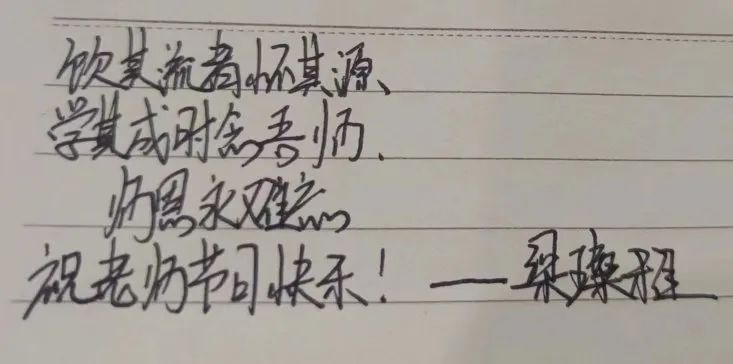 饮其流者怀其源、
学其成时念吾师.
师恩永难忘
祝老师节日快乐！——梁